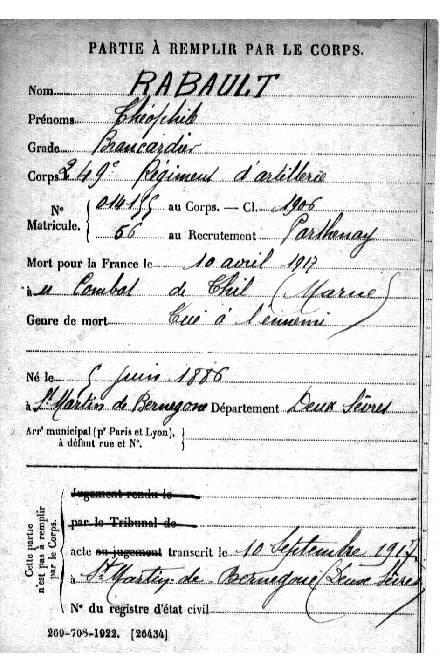 PARTIE À REMPLIR PAR LE CORPS.
Nom RABAULT
Prénoms Théophile
Grade Brancardier
Corps 249e Régiment d'artillerie
N° Matricule. { 014155 au Corps. — Cl. 1906
56 au Recrutement Parthenay
Mort pour la France le 10 avril 1917
à u Combat de Thil (Marne)
Genre de mort Tué à l'ennemi
Né le 5 Juin 1886
à St Martin de Bernegoue Département Deux Sèvres
Arrt municipal (pr Paris et Lyon), }
à défaut rue et N°.
Cette partie n'est pas à remplir par le Corps.
Jugement rendu le
par le Tribunal de
acte ou jugement transcrit le 10 Septembre 1917
à St Martin de Bernegoue (Deux Sèvres)
N° du registre d'état civil
269-708-1922. [26434]